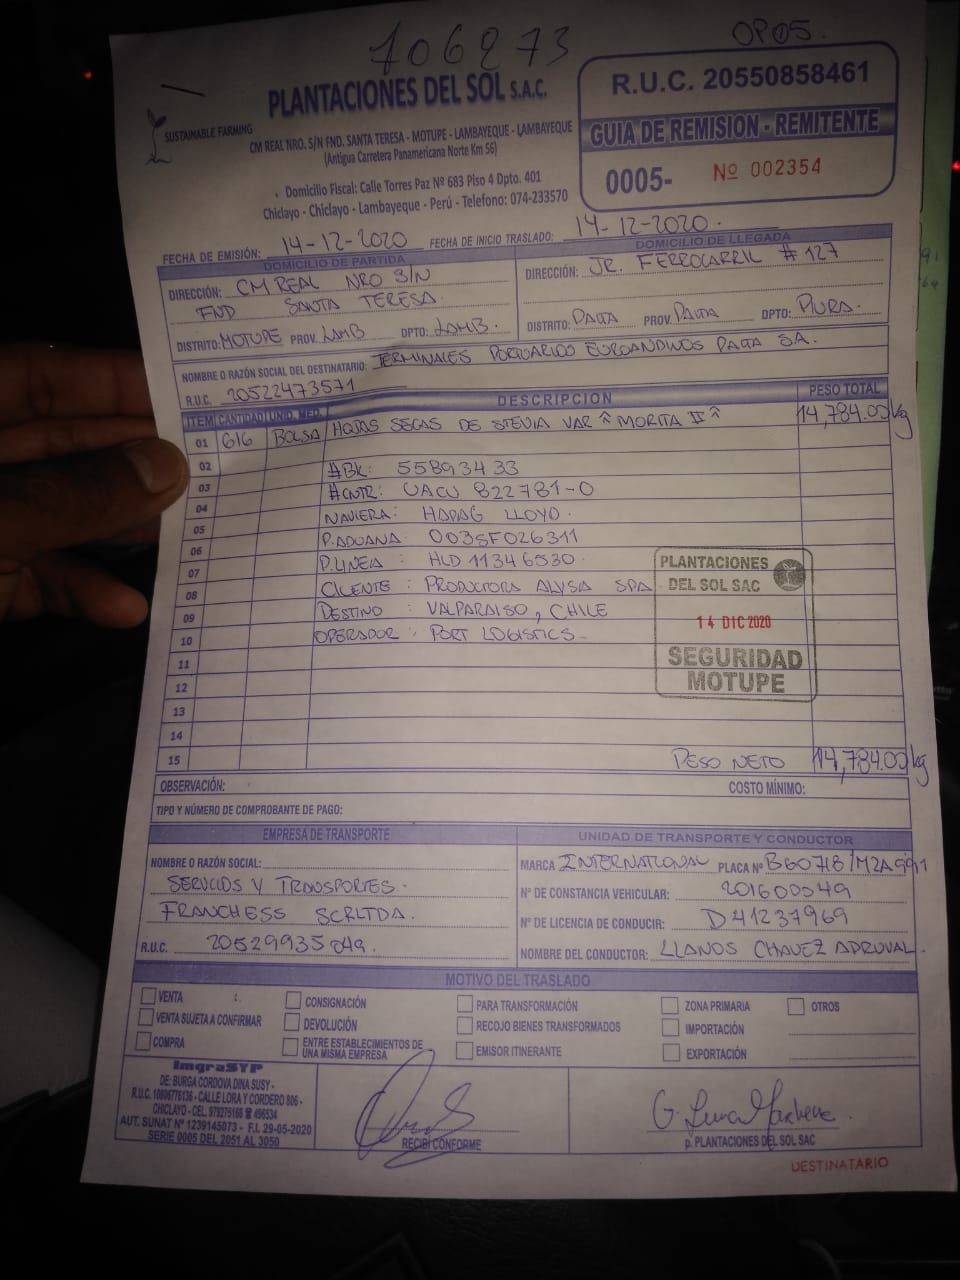 106273
OP05.
PLANTACIONES DEL SOL S.A.C.
SUSTAINABLE FARMING
CM REAL NRO. S/N FND. SANTA TERESA - MOTUPE - LAMBAYEQUE - LAMBAYEQUE
(Antigua Carretera Panamericana Norte Km 56)
. Domicilio Fiscal: Calle Torres Paz Nº 683 Piso 4 Dpto. 401
Chiclayo - Chiclayo - Lambayeque - Perú - Telefono: 074-233570
R.U.C. 20550858461
GUIA DE REMISION - REMITENTE
0005- Nº 002354
FECHA DE EMISIÓN: 14-12-2020 FECHA DE INICIO TRASLADO: 14-12-2020.
DOMICILIO DE PARTIDA
DIRECCIÓN: CM REAL NRO S/N
FND SANTA TERESA.
DISTRITO: MOTUPE PROV. LAMB DPTO: LAMB.
DOMICILIO DE LLEGADA
DIRECCIÓN: JR. FERROCARRIL # 127
DISTRITO: PAITA PROV. PAITA DPTO: PIURA.
NOMBRE O RAZÓN SOCIAL DEL DESTINATARIO: TERMINALES PORTUARIOS EUROANDINOS PAITA SA.
R.U.C. 20522473571
ITEM CANTIDAD UNID. MED. DESCRIPCION PESO TOTAL
01 616 BOLSA HOJAS SECAS DE STEVIA VAR "MORITA II" 14,784.00kg
02 #BK: 55893433
03 #CNTR: UACU 822781-0
04 NAVIERA: HAPAG LLOYD.
05 P.ADUANA: 003SF026311
06 P.LINEA : HLD 11346530.
07 CLIENTE : PRODUCTORA ALYSIA SPA
08 DESTINO : VALPARAISO, CHILE
09 OPERADOR : PORT LOGISTICS.
10
11
12
13
14
15 PESO NETO 14,784.00kg
PLANTACIONES
DEL SOL SAC
14 DIC 2020
SEGURIDAD
MOTUPE
OBSERVACIÓN: COSTO MÍNIMO:
TIPO Y NÚMERO DE COMPROBANTE DE PAGO:
EMPRESA DE TRANSPORTE
NOMBRE O RAZÓN SOCIAL:
SERVICIOS Y TRANSPORTES.
FRANCHESS SCRLTDA.
R.U.C. 20529935049.
UNIDAD DE TRANSPORTE Y CONDUCTOR
MARCA INTERNATIONAL PLACA Nº B60718/M2A991
Nº DE CONSTANCIA VEHICULAR: 201600049
Nº DE LICENCIA DE CONDUCIR: D41237969
NOMBRE DEL CONDUCTOR: LLANOS CHAVEZ ADRUVAL.
MOTIVO DEL TRASLADO
VENTA CONSIGNACIÓN PARA TRANSFORMACIÓN ZONA PRIMARIA OTROS
VENTA SUJETA A CONFIRMAR DEVOLUCIÓN RECOJO BIENES TRANSFORMADOS IMPORTACIÓN
COMPRA ENTRE ESTABLECIMIENTOS DE UNA MISMA EMPRESA EMISOR ITINERANTE EXPORTACIÓN
ImgraSYP
DE: BURGA CORDOVA DINA SUSY -
R.U.C. 10806776136 - CALLE LORA Y CORDERO 806 -
CHICLAYO - CEL. 979275166 ☎ 496534
AUT. SUNAT Nº 1239145073 - F.I. 29-05-2020
SERIE 0005 DEL 2051 AL 3050
RECIBÍ CONFORME
p. PLANTACIONES DEL SOL SAC
DESTINATARIO